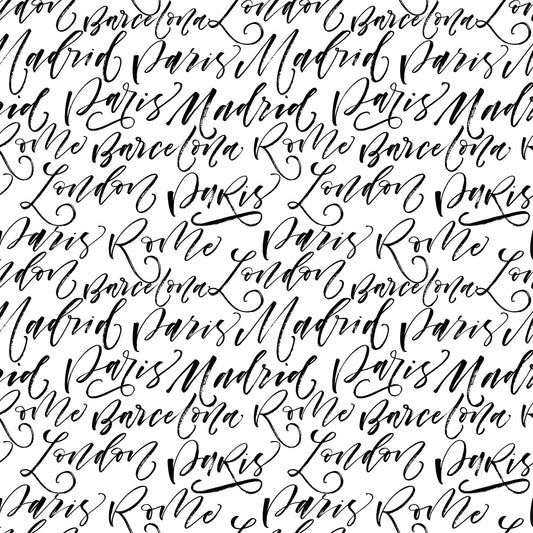 London Barcelona London Barcelona London
Madrid Paris Madrid Paris M
Madrid Paris Madrid Paris Madrid
Rome Barcelona Rome Barcelona R
London Paris London Paris
Paris Rome Paris Rome
London Barcelona London Barcelona London
Madrid Paris Madrid Paris M
Madrid Paris Madrid Paris Madrid
Rome Barcelona Rome Barcelona R
London Paris London Paris
Paris Rome Paris Rome